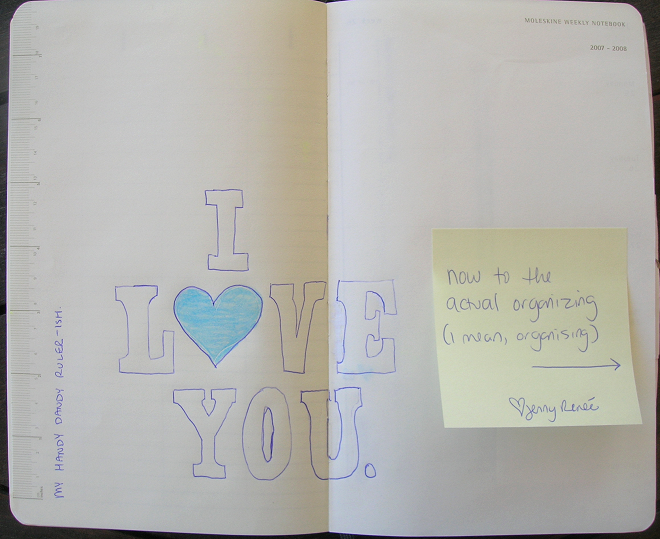 MOLESKINE WEEKLY NOTEBOOK
2007 – 2008
I
LOVE
YOU.
MY HANDY DANDY RULER-ISH.
now to the
actual organizing
(i mean, organising)
Jenny Renée